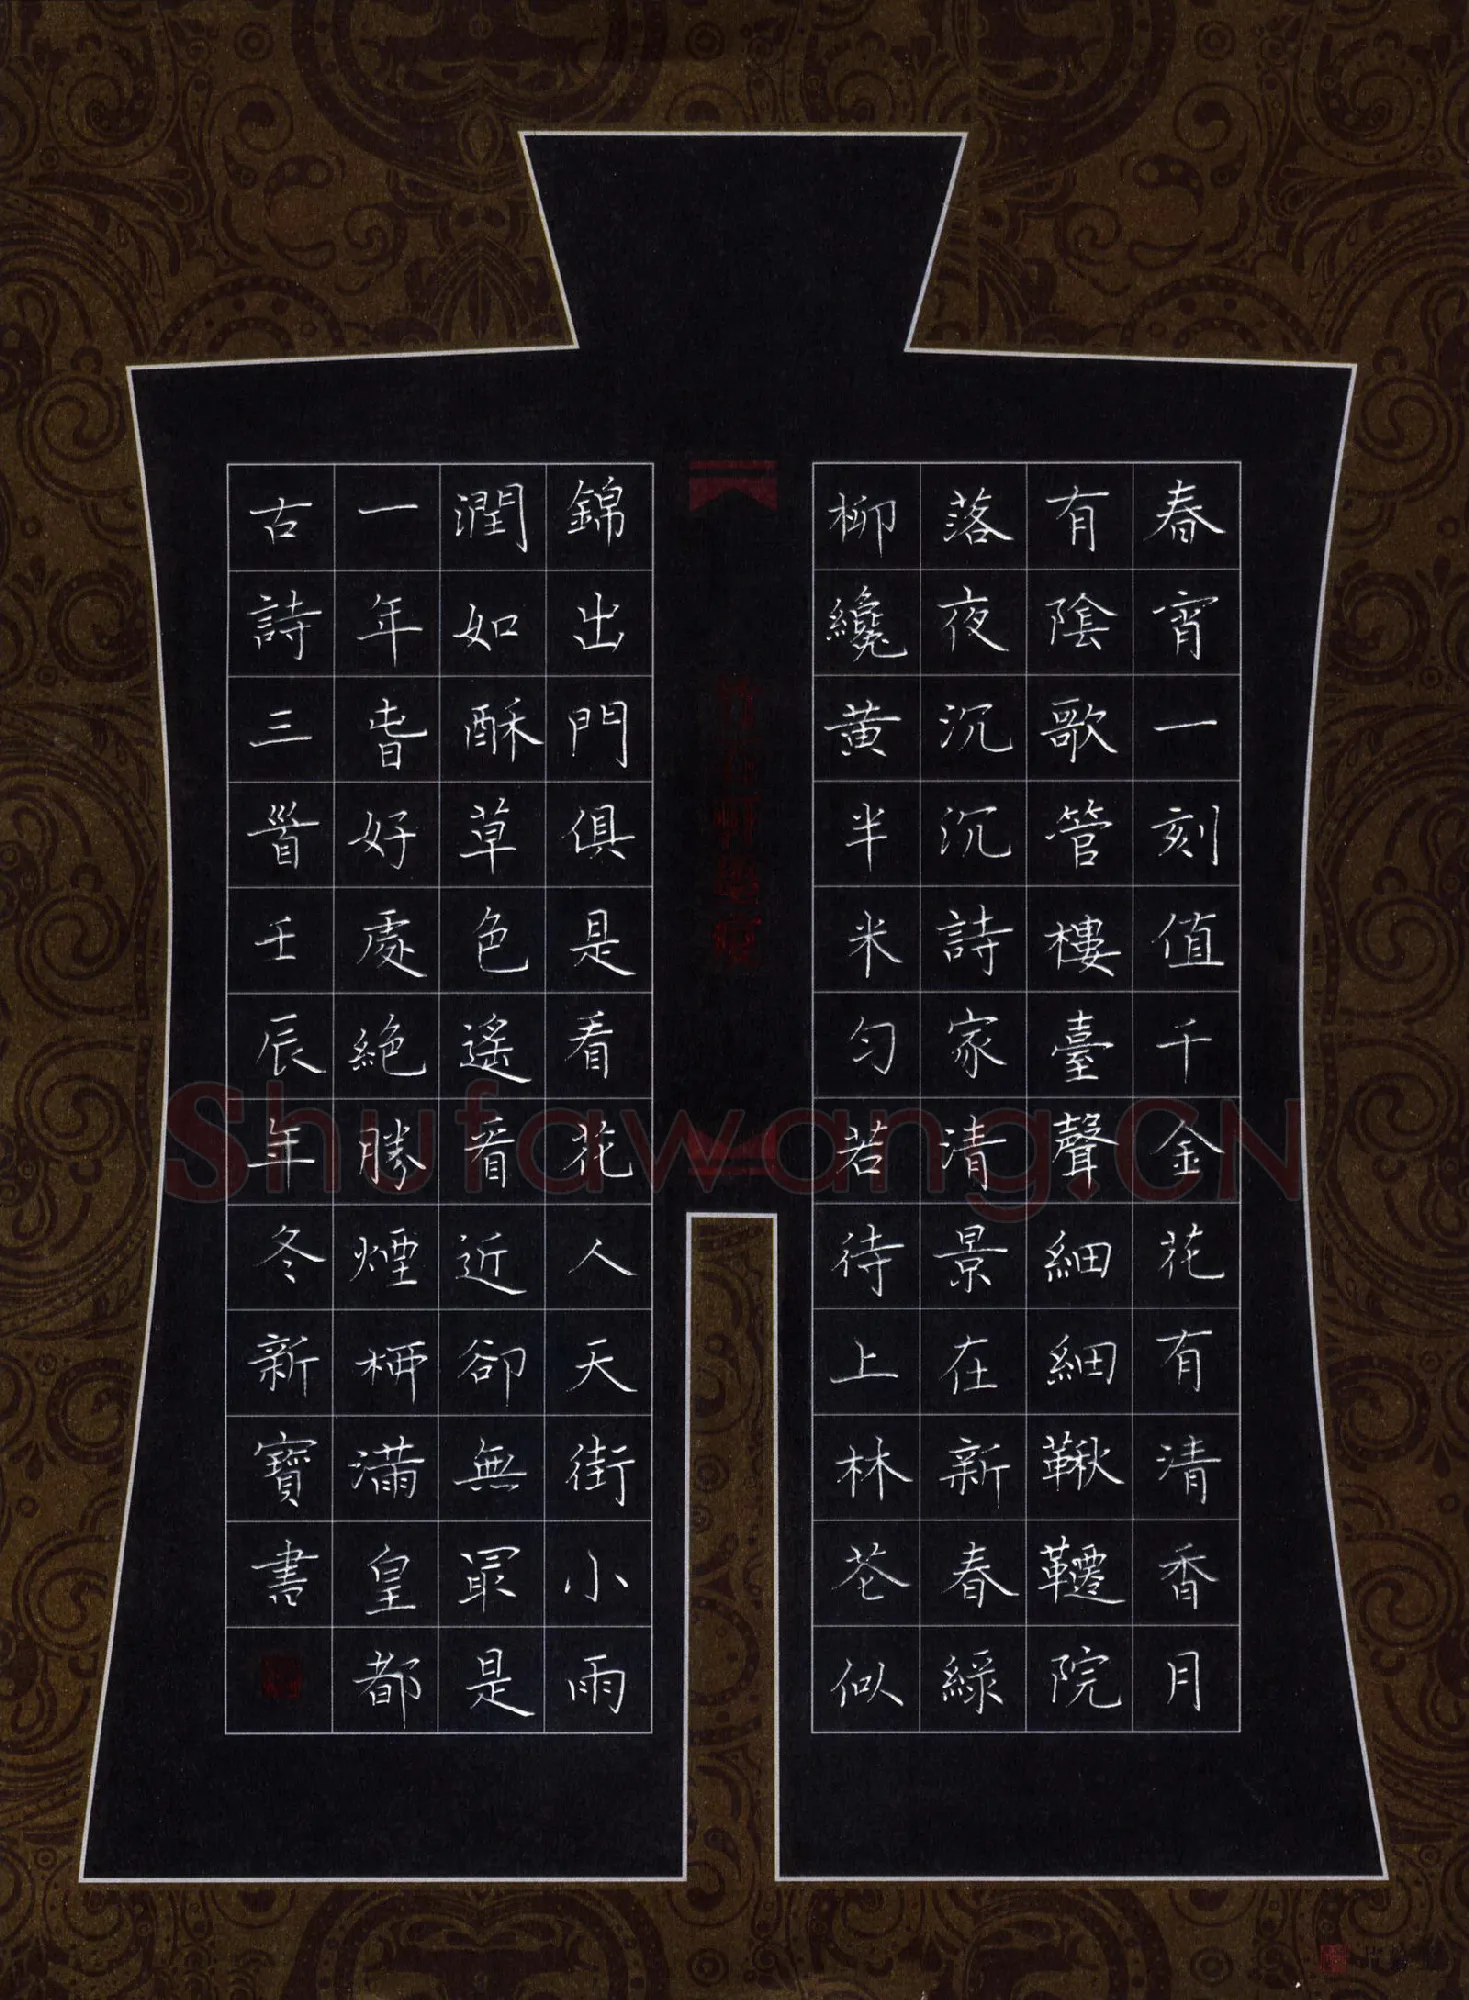 春宵一刻值千金花有清香月
有陰歌管樓臺聲細細鞦韆院
落夜沉沉詩家清景在新春綠
柳纔黃半米匀若待上林芲似
錦出門俱是看花人天街小雨
潤如酥草色遙看近卻無最是
一年旾好處絕勝煙柳滿皇都
古詩三首壬辰年冬新寶書
Shufawang.CN